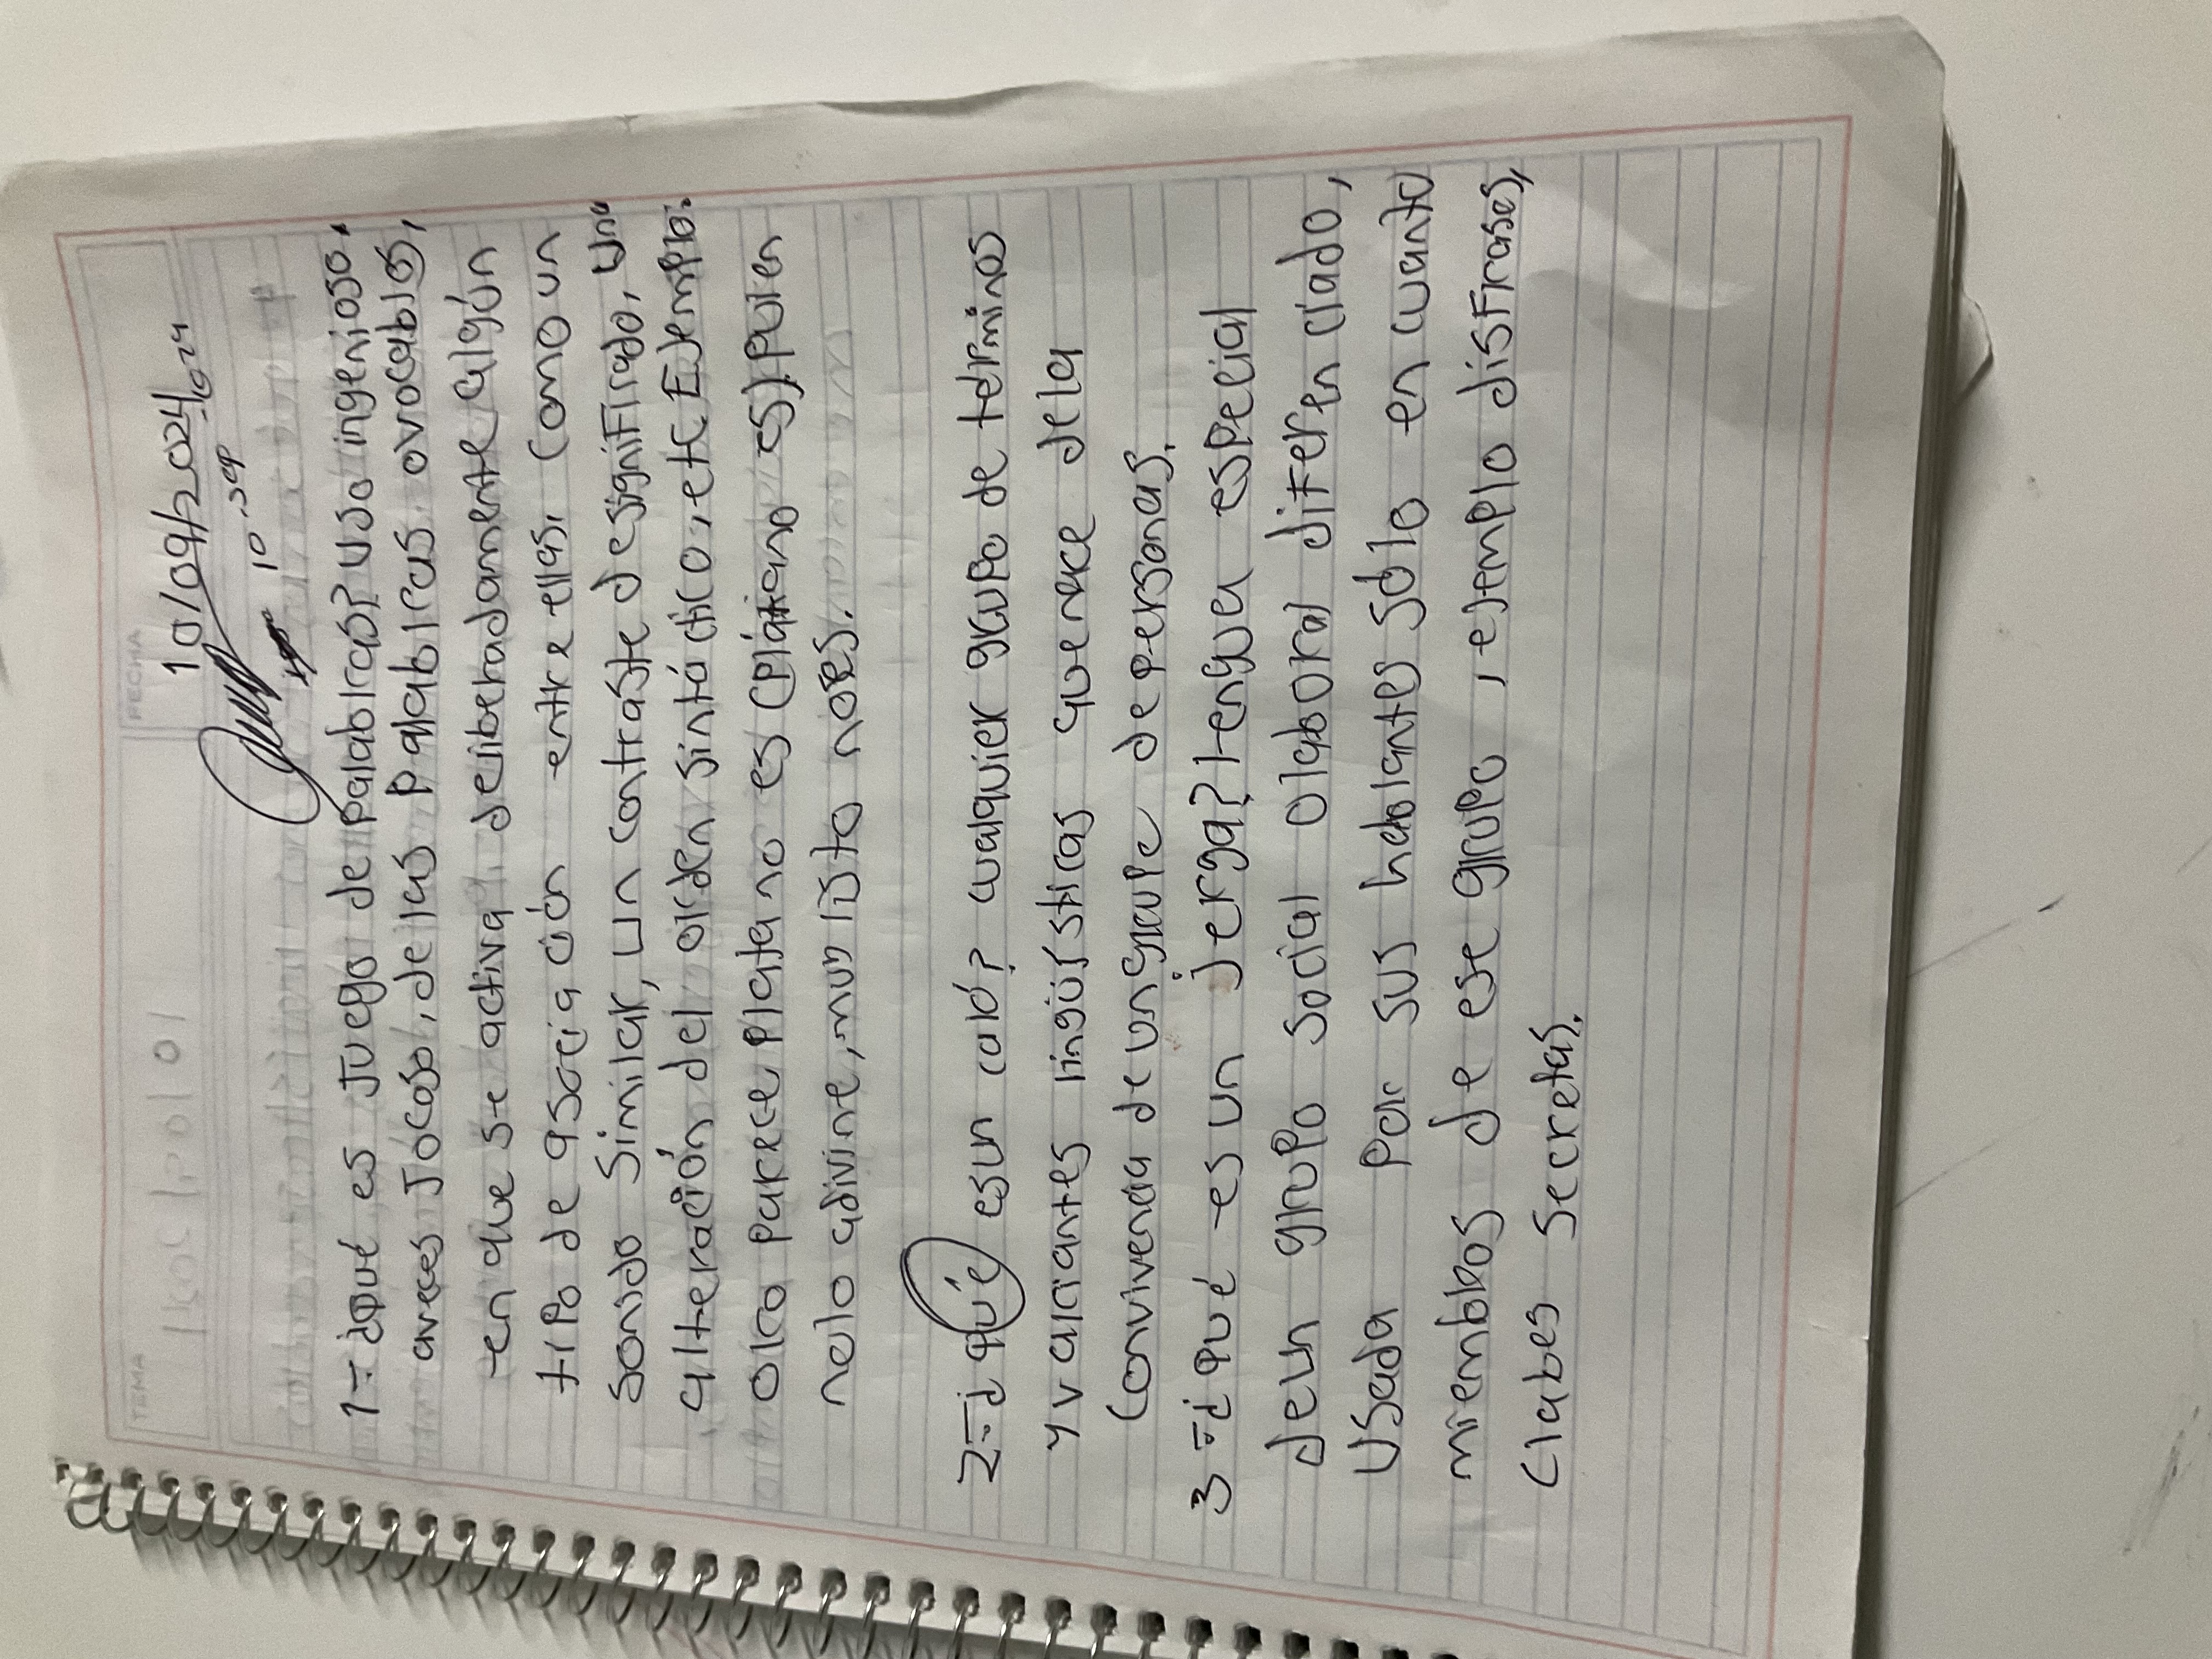 TEMA
FECHA
10/09/2024
10-sep-2024
1-¿qué es Juego de Palabras? Uso ingenioso,
aveces Jocoso, de las Palabras ovocablos,
en que se activa deliberadamente algún
tipo de asociación entre ellas, Como un
sonido Similar, un contraste designifirado, una
alteración del orden sintáctico, etc Ejemplo:
Oro parece, Plata no es (Plátano es) Quien
nolo adivine, muy listo noes.
2-¿qué esun caló? cualquier grupo de terminos
y variantes lingüísticas quenace dela
Convivencia de ungrupo de personas.
3-¿qué es un Jerga? Lengua especial
deun grupo social olaboral diferenciado,
Usada Por sus hablantes sólo en cuanto
miembros de ese grupo, ejemplo disfrases,
Clabes secretas.